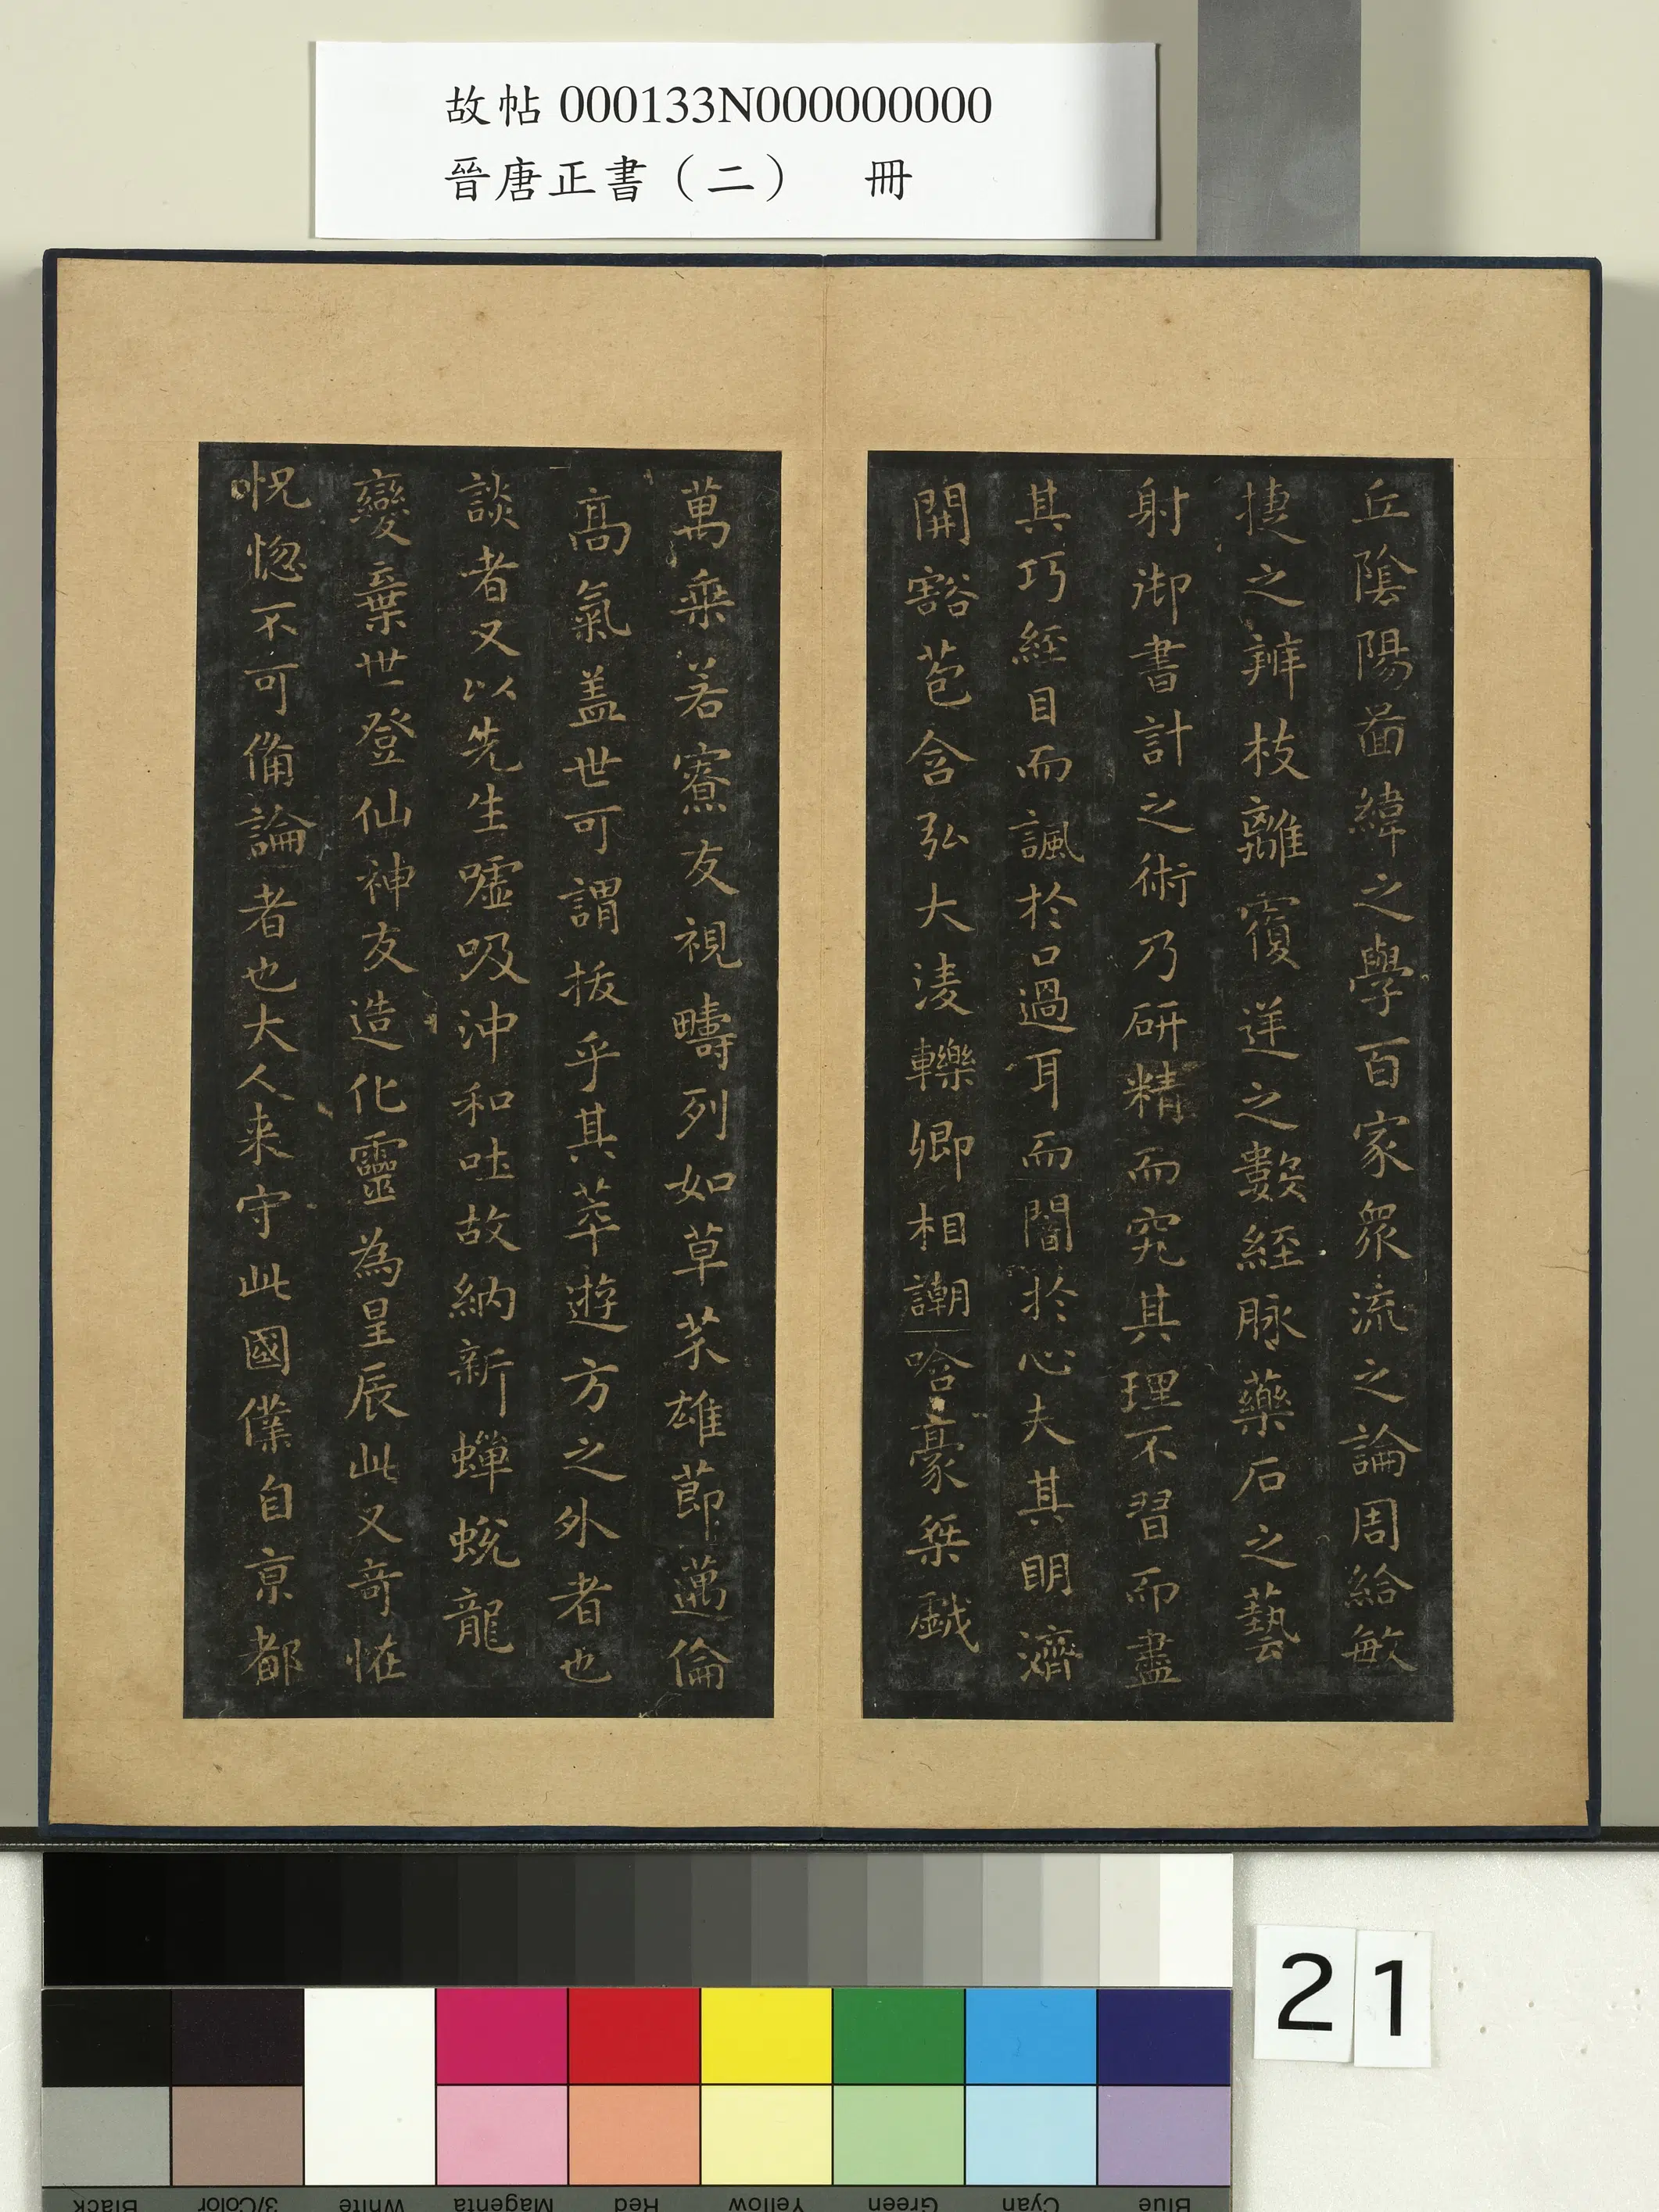 故帖 000133N000000000
晉唐正書（二）　冊
丘陰陽啚緯之學百家衆流之論周給敏
捷之辨枝離覆逆之數經脉藥石之藝
射御書計之術乃研精而究其理不習而盡
其巧經目而諷於口過耳而闇於心夫其明濟
開豁苞含弘大淩轢卿相謿哈豪桀戲
萬乘若寮友視疇列如草芥雄節邁倫
高氣盖世可謂拔乎其萃遊方之外者也
談者又以先生噓吸沖和吐故納新蟬蛻龍
變棄世登仙神友造化靈為星辰此又奇恠
怳惚不可俻論者也大人来守此國僕自京都
21
Black 3/Color White Magenta Red Yellow Green Cyan Blue